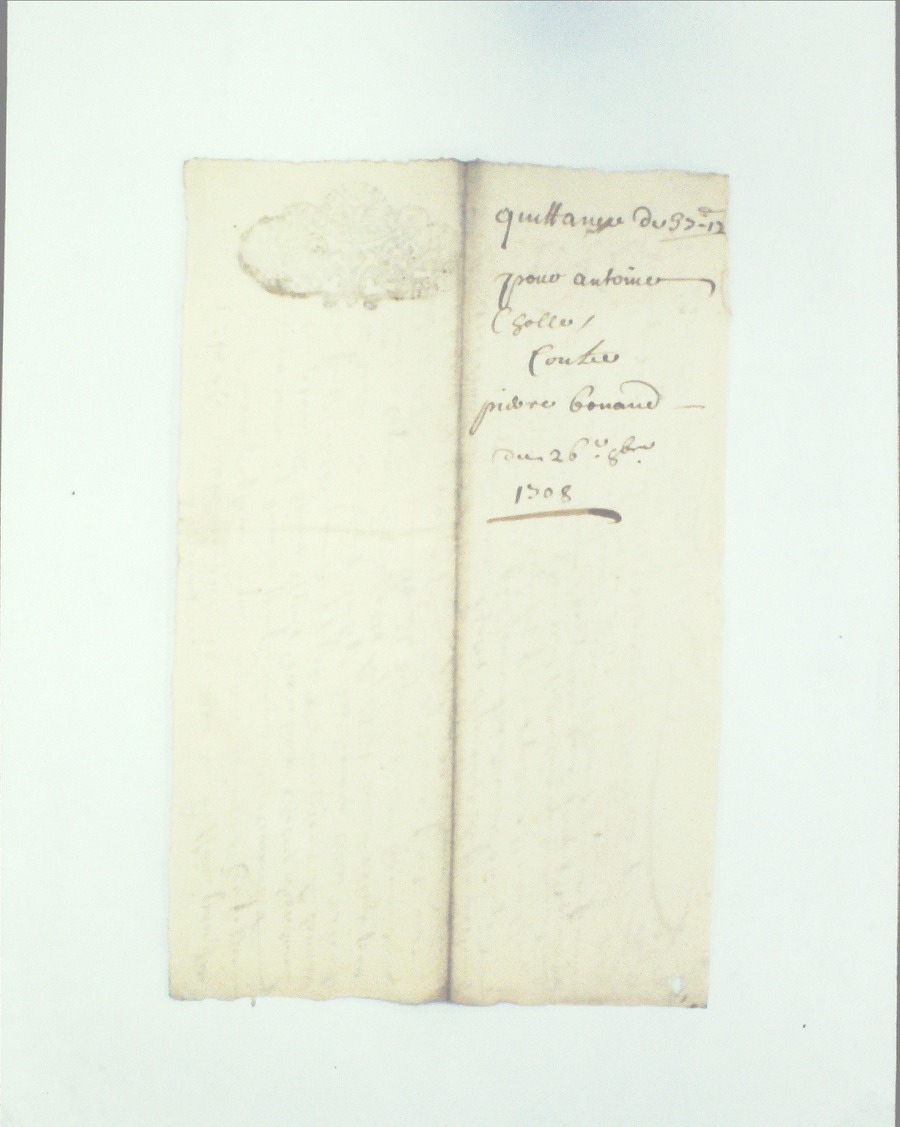 quittance de 57lt-12
pour antoine
Cholle,
Contre
pierre bonaud
du 26e 8bre
1708